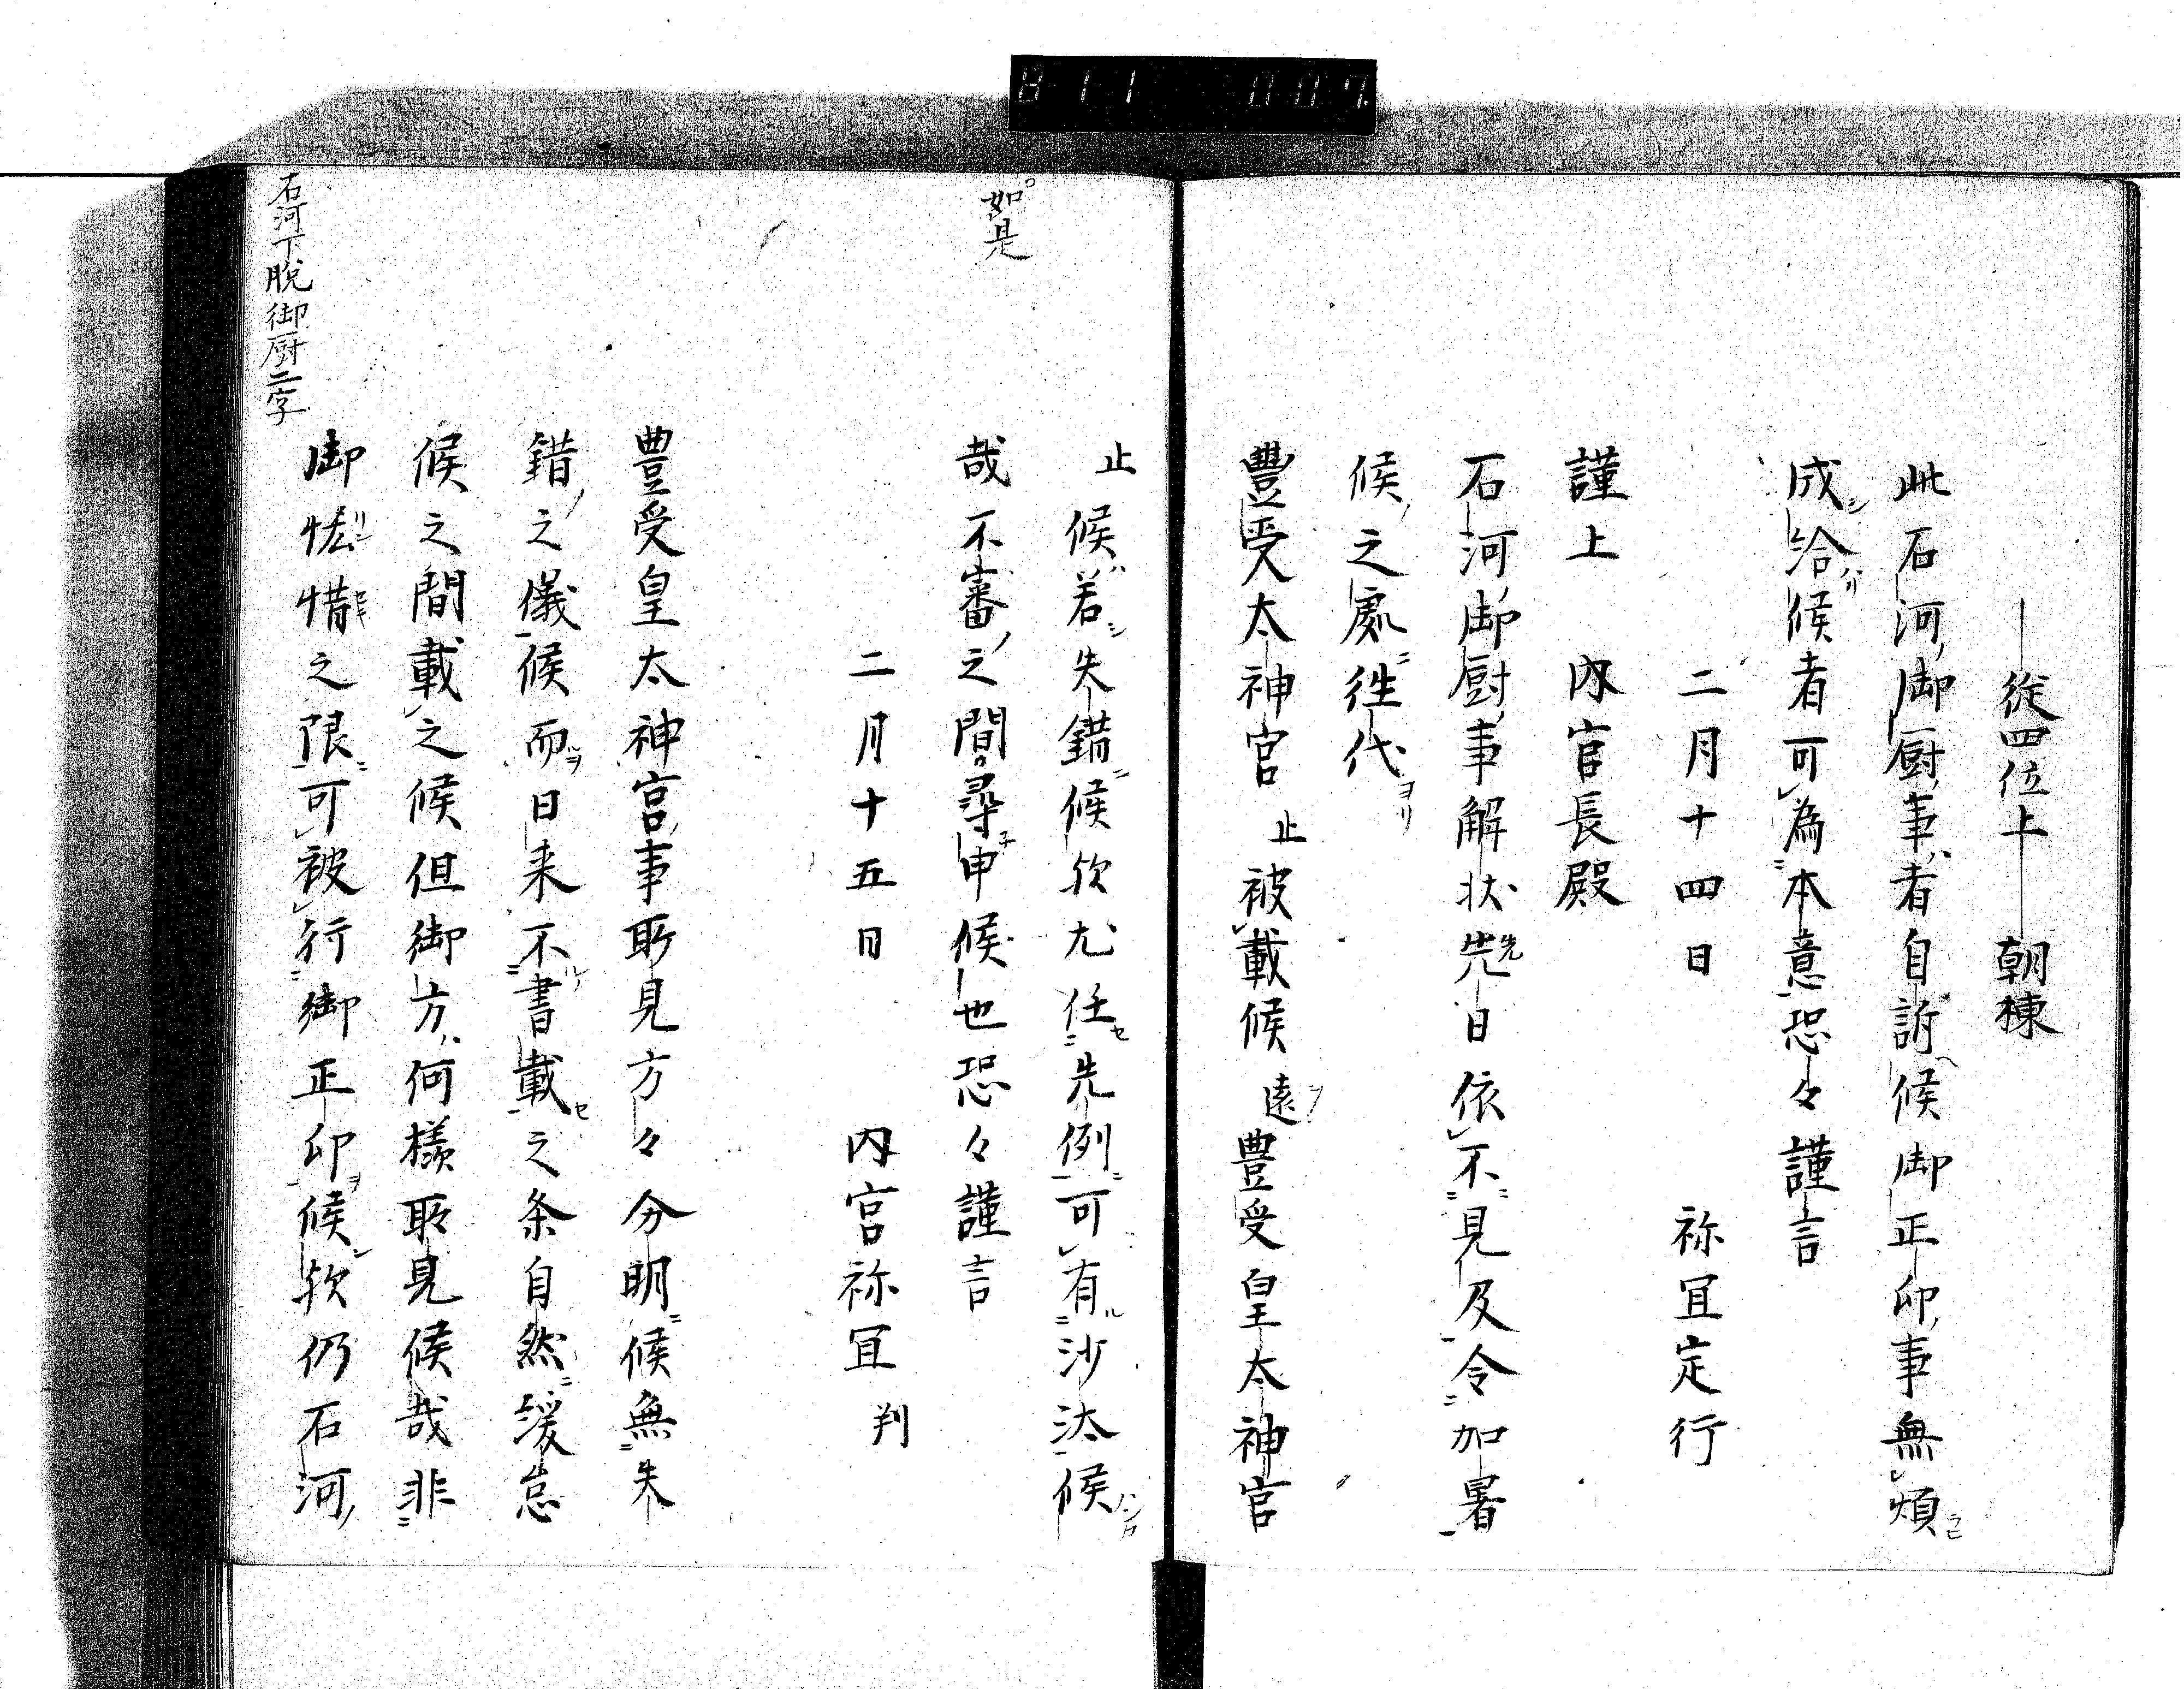 従四位上 朝棟
此石河御厨事者自訴候御正印事無煩
成給候者可為本意恐々謹言
二月十四日 祢冝定行
謹上 内官長殿
石河御厨事解状先日依不見及令加署
候之處徃代
豊受太神官止被載候遠豊受皇太神官
止候若失錯候欤尤任先例可有沙汰候
哉不審之間尋申候也恐々謹言
如是
二月十五日 内宮祢冝判
豊受皇太神宮事所見方々分明候無失
錯之儀候而日来不書載之条自然緩怠
候之間載之候但御方何様所見候哉非
御恡惜之限可被行御正印候欤仍石河
石河下脱御厨二字